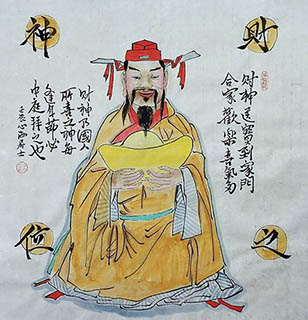 財
神
之
位
財神送寶到家門
合家歡樂喜氣
財神乃國人
所喜之神每
逢年節必
中庭拜之也
居士